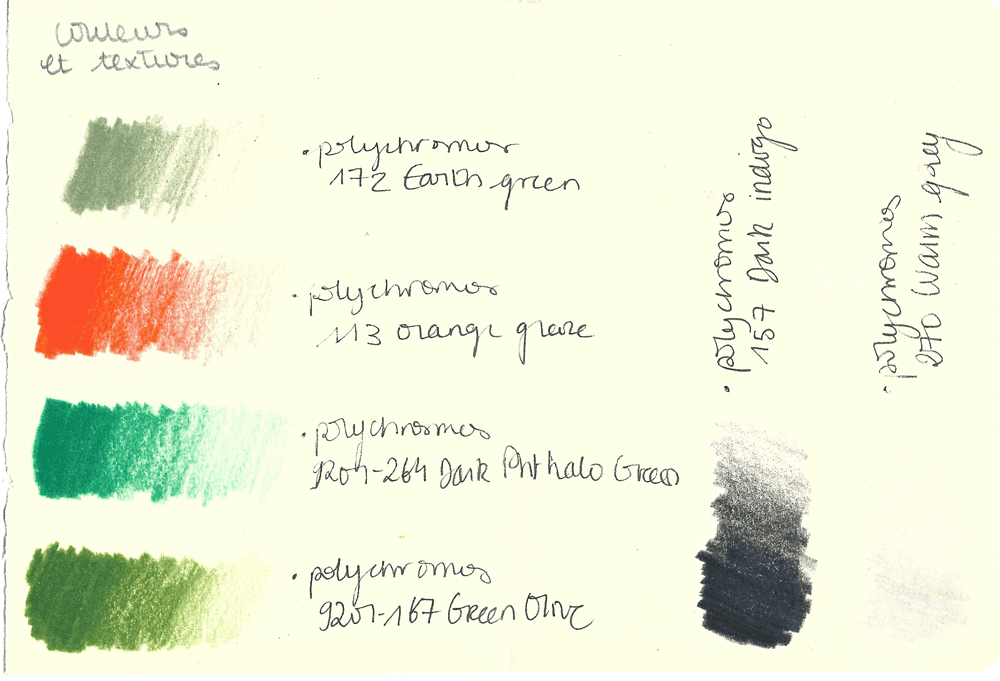 couleurs
et textures
• polychromos
172 Earth green
• polychromos
113 orange glaze
• polychromos
9201-264 Dark Phthalo Green
• polychromos
9201-167 Green Olive
• polychromos
157 Dark indigo
• polychromos
270 Warm grey